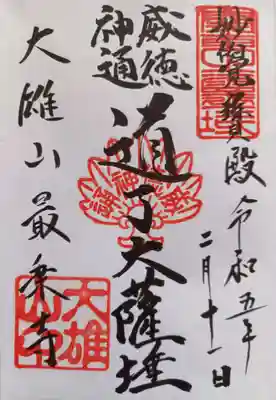 妙覚寳殿
令和五年
二月十一日
威徳
神通
道了大薩埵
大雄山最乗寺
大雄
山印